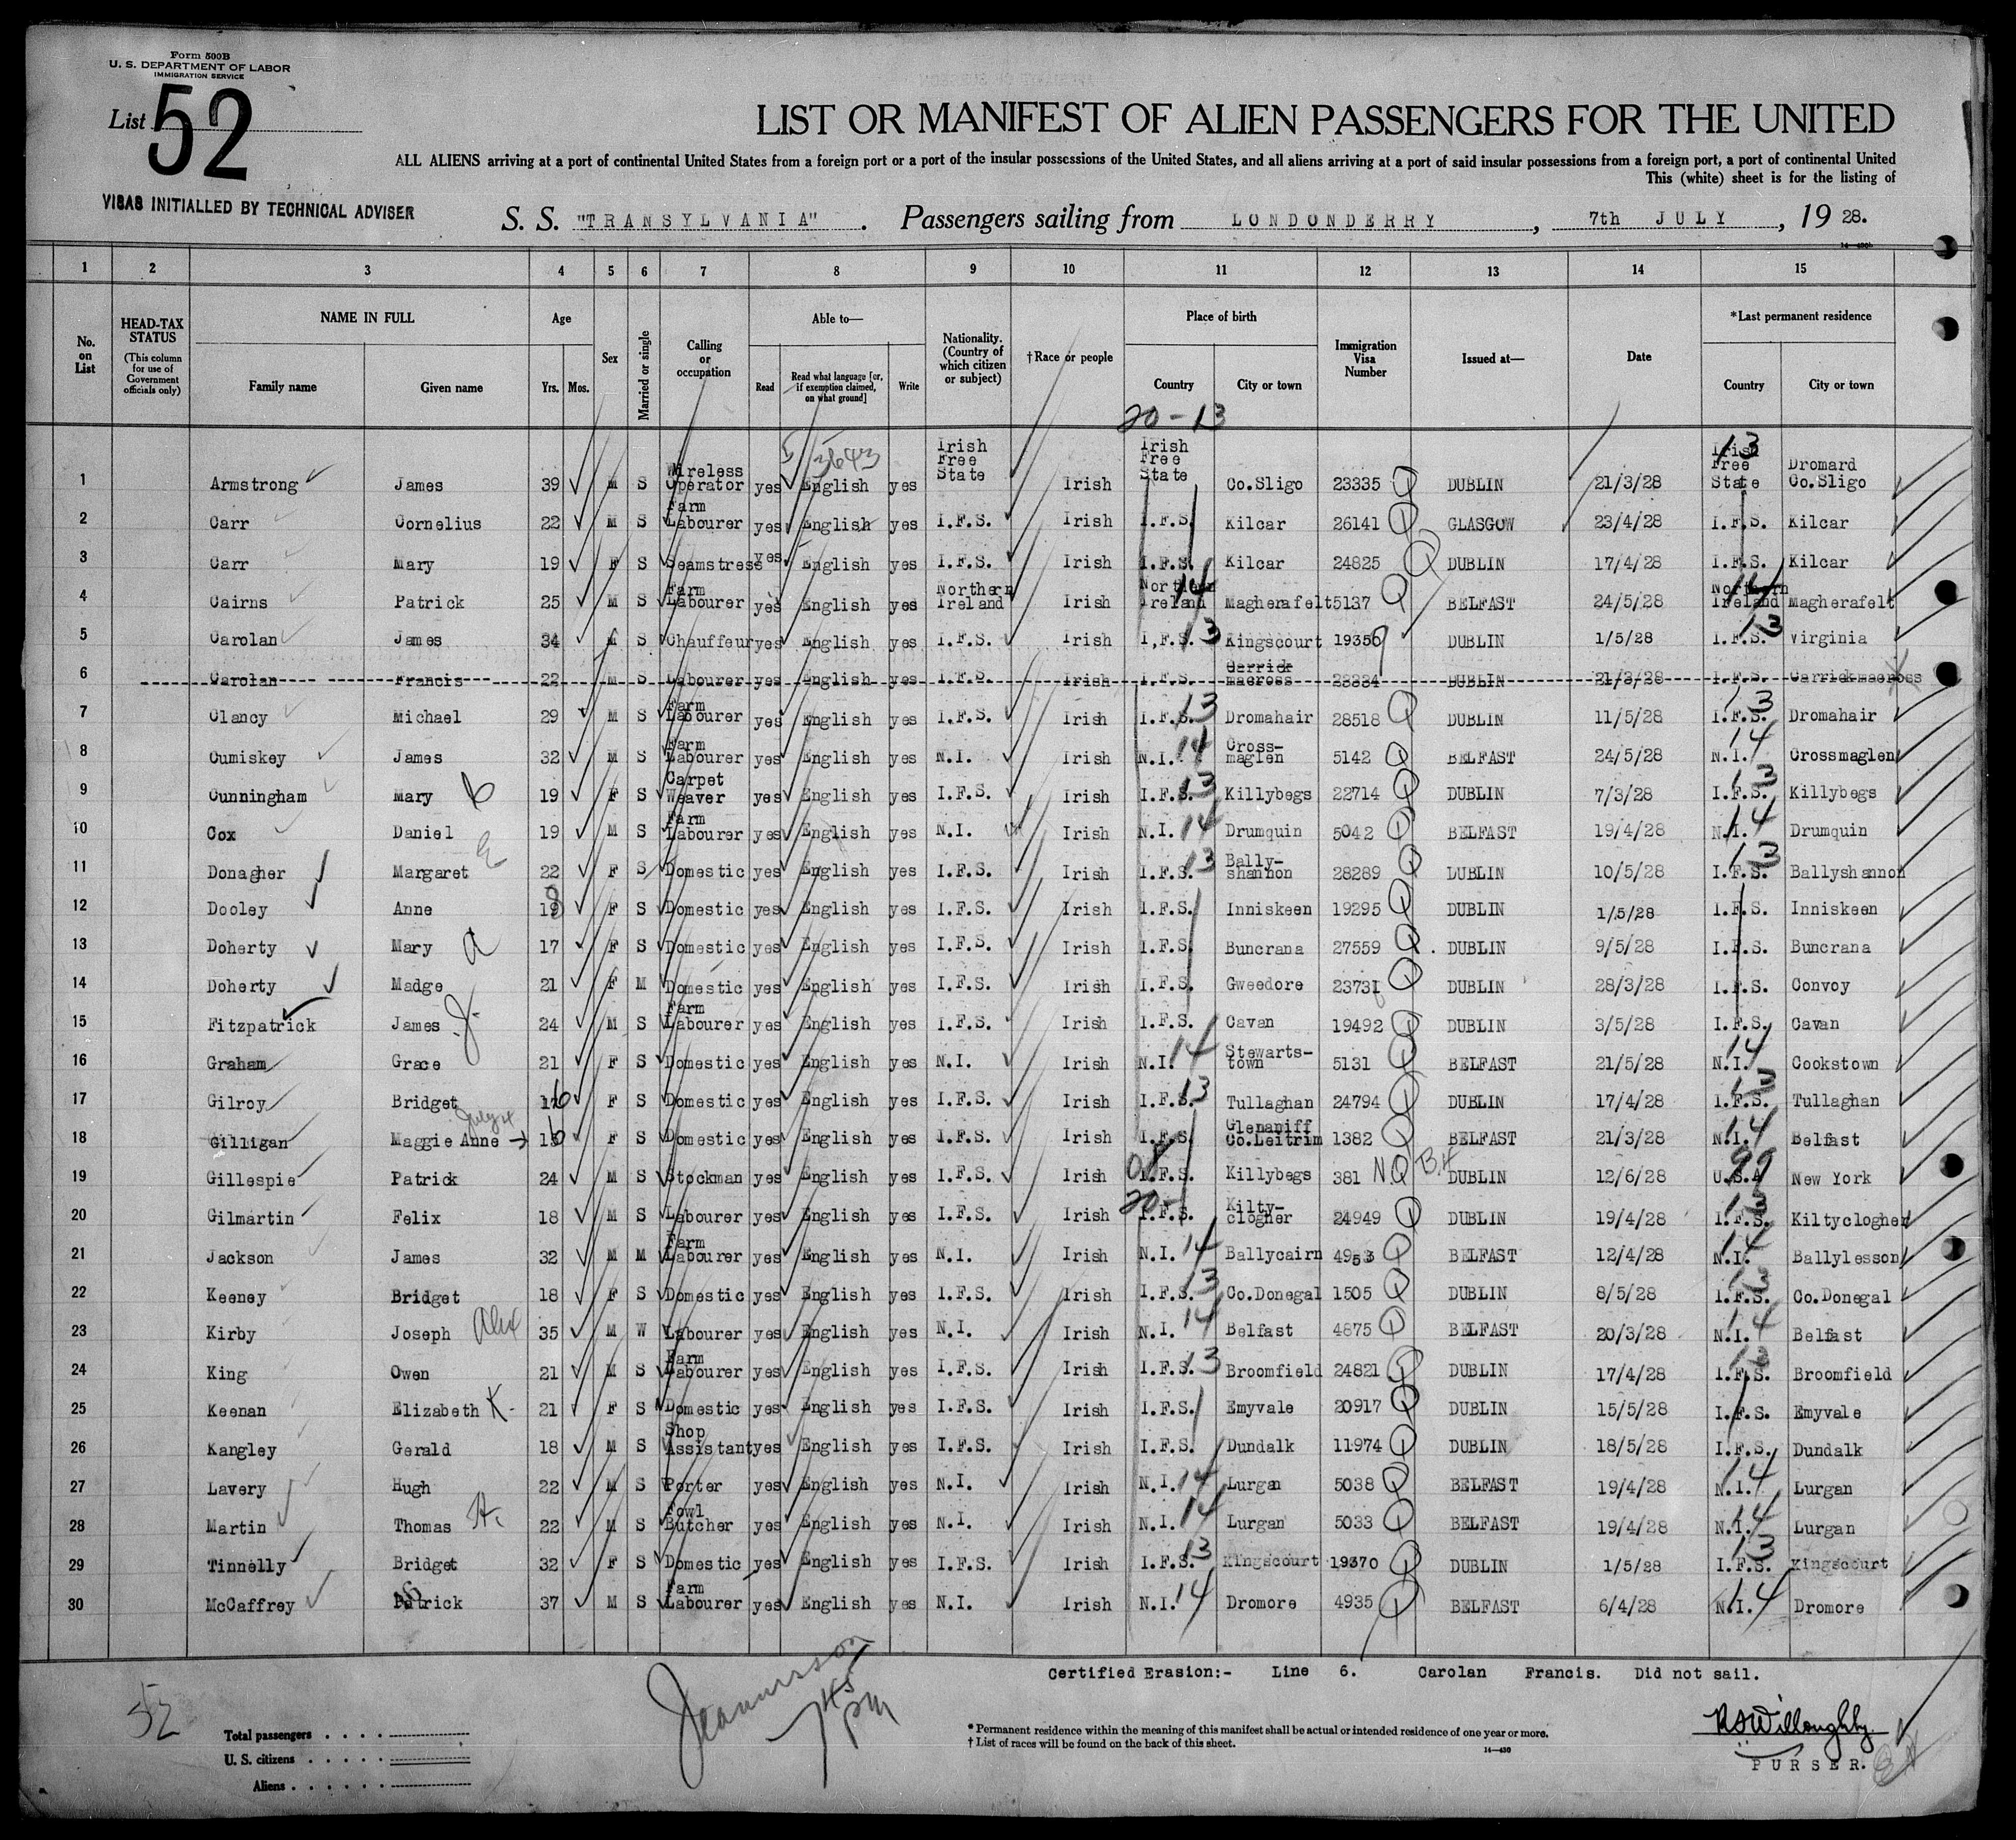 Form 500B
U. S. DEPARTMENT OF LABOR
IMMIGRATION SERVICE
List 52
LIST OR MANIFEST OF ALIEN PASSENGERS FOR THE UNITED
ALL ALIENS arriving at a port of continental United States from a foreign port or a port of the insular possessions of the United States, and all aliens arriving at a port of said insular possessions from a foreign port, a port of continental United
This (white) sheet is for the listing of
VISAS INITIALLED BY TECHNICAL ADVISER
S. S. "TRANSYLVANIA". Passengers sailing from LONDONDERRY, 7th JULY, 1928.
1 2 3 4 5 6 7 8 9 10 11 12 13 14 15
No. on List
HEAD-TAX STATUS (This column for use of Government officials only)
NAME IN FULL Family name Given name
Age Yrs. Mos.
Sex
Married or single
Calling or occupation
Able to— Read Read what language [or, if exemption claimed, on what ground] Write
Nationality. (Country of which citizen or subject)
†Race or people
Place of birth Country City or town
Immigration Visa Number
Issued at—
Date
*Last permanent residence Country City or town
20-13
1 Armstrong James 39 M S Wireless Operator yes English yes Irish Free State Irish Irish Free State Co.Sligo 23335 DUBLIN 21/3/28 Irish Free State 13 Dromard Co.Sligo
2 Carr Cornelius 22 M S Farm Labourer yes English yes I.F.S. Irish I.F.S. Kilcar 26141 GLASGOW 23/4/28 I.F.S. Kilcar
3 Carr Mary 19 F S Seamstress yes English yes I.F.S. Irish I.F.S. Kilcar 24825 DUBLIN 17/4/28 I.F.S. Kilcar
4 Cairns Patrick 25 M S Farm Labourer yes English yes Northern Ireland Irish Northern Ireland 14 Magherafelt 5137 BELFAST 24/5/28 Northern Ireland 14 Magherafelt
5 Carolan James 34 M S Chauffeur yes English yes I.F.S. Irish I.F.S. 13 Kingscourt 19350 DUBLIN 1/5/28 I.F.S. 13 Virginia
6 Carolan Francis 22 M S Labourer yes English yes I.F.S. Irish I.F.S. Carrick macross DUBLIN 21/3/28 I.F.S. Carrickmacross
7 Clancy Michael 29 M S Farm Labourer yes English yes I.F.S. Irish I.F.S. 13 Dromahair 28518 DUBLIN 11/5/28 I.F.S. 13 Dromahair
8 Cumiskey James 32 M S Farm Labourer yes English yes N.I. Irish N.I. 14 Cross- maglen 5142 BELFAST 24/5/28 N.I. 14 Crossmaglen
9 Cunningham Mary 19 F S Carpet Weaver yes English yes I.F.S. Irish I.F.S. 13 Killybegs 22714 DUBLIN 7/3/28 I.F.S. 13 Killybegs
10 Cox Daniel 19 M S Farm Labourer yes English yes N.I. Irish N.I. 14 Drumquin 5042 BELFAST 19/4/28 N.I. 14 Drumquin
11 Donagher Margaret 22 F S Domestic yes English yes I.F.S. Irish I.F.S. 13 Bally- shannon 28289 DUBLIN 10/5/28 I.F.S. 13 Ballyshannon
12 Dooley Anne F S Domestic yes English yes I.F.S. Irish I.F.S. Inniskeen 19295 DUBLIN 1/5/28 I.F.S. Inniskeen
13 Doherty Mary a 17 F S Domestic yes English yes I.F.S. Irish I.F.S. Buncrana 27559 DUBLIN 9/5/28 I.F.S. Buncrana
14 Doherty Madge 21 F M Domestic yes English yes I.F.S. Irish I.F.S. Gweedore 23731 DUBLIN 28/3/28 I.F.S. Convoy
15 Fitzpatrick James J. 24 M S Farm Labourer yes English yes I.F.S. Irish I.F.S. Cavan 19492 DUBLIN 3/5/28 I.F.S. Cavan
16 Graham Grace 21 F S Domestic yes English yes N.I. Irish N.I. 14 Stewarts- town 5131 BELFAST 21/5/28 N.I. 14 Cookstown
17 Gilroy Bridget F S Domestic yes English yes I.F.S. Irish I.F.S. 13 Tullaghan 24794 DUBLIN 17/4/28 I.F.S. 13 Tullaghan
18 Gilligan Maggie Anne F S Domestic yes English yes I.F.S. Irish I.F.S. Glenaniff Co.Leitrim 1382 BELFAST 21/3/28 N.I. 14 Belfast
19 Gillespie Patrick 24 M S Stockman yes English yes I.F.S. Irish I.F.S. Killybegs 381 NQ DUBLIN 12/6/28 U.S.A 99 New York
20 Gilmartin Felix 18 M S Labourer yes English yes I.F.S. Irish 20- I.F.S. Kilty- clogher 24949 DUBLIN 19/4/28 I.F.S. 13 Kiltyclogher
21 Jackson James 32 M M Farm Labourer yes English yes N.I. Irish N.I. 14 Ballycairn 4953 BELFAST 12/4/28 N.I. 14 Ballylesson
22 Keeney Bridget 18 F S Domestic yes English yes I.F.S. Irish I.F.S. 13 Co.Donegal 1505 DUBLIN 8/5/28 I.F.S. 13 Co.Donegal
23 Kirby Joseph Alex 35 M W Labourer yes English yes N.I. Irish N.I. 14 Belfast 4875 BELFAST 20/3/28 N.I. 14 Belfast
24 King Owen 21 M S Farm Labourer yes English yes I.F.S. Irish I.F.S. 13 Broomfield 24821 DUBLIN 17/4/28 I.F.S. 13 Broomfield
25 Keenan Elizabeth K- 21 F S Domestic yes English yes I.F.S. Irish I.F.S. Emyvale 20917 DUBLIN 15/5/28 I.F.S. Emyvale
26 Kangley Gerald 18 M S Shop Assistant yes English yes I.F.S. Irish I.F.S. Dundalk 11974 DUBLIN 18/5/28 I.F.S. Dundalk
27 Lavery Hugh 22 M S Porter yes English yes N.I. Irish N.I. 14 Lurgan 5038 BELFAST 19/4/28 N.I. 14 Lurgan
28 Martin Thomas H. 22 M S Fowl Butcher yes English yes N.I. Irish N.I. 14 Lurgan 5033 BELFAST 19/4/28 N.I. 14 Lurgan
29 Tinnelly Bridget 32 F S Domestic yes English yes I.F.S. Irish I.F.S. 13 Kingscourt 19370 DUBLIN 1/5/28 I.F.S. 13 Kingscourt
30 McCaffrey Patrick 37 M S Farm Labourer yes English yes N.I. Irish N.I. 14 Dromore 4935 BELFAST 6/4/28 N.I. 14 Dromore
Certified Erasion:- Line 6. Carolan Francis. Did not sail.
52
745 pm
Total passengers
U. S. citizens
Aliens
* Permanent residence within the meaning of this manifest shall be actual or intended residence of one year or more.
† List of races will be found on the back of this sheet.
14—430
RSWilloughby
PURSER.